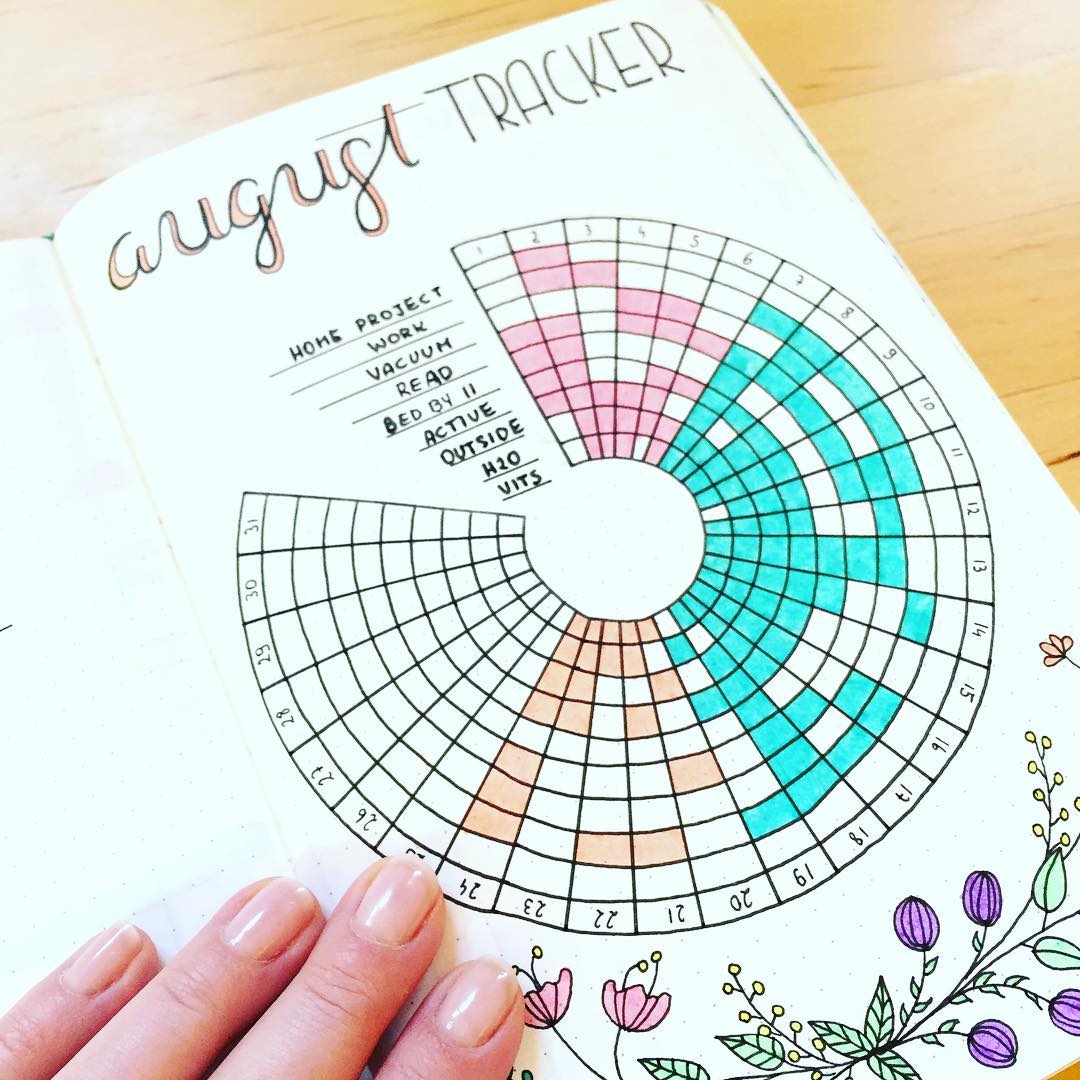 august TRACKER
HOME PROJECT
WORK
VACUUM
READ
BED BY 11
ACTIVE
OUTSIDE
H2O
VITS
1
2
3
4
5
6
7
8
9
10
11
12
13
14
15
16
17
18
19
20
21
22
23
24
26
27
28
29
30
31